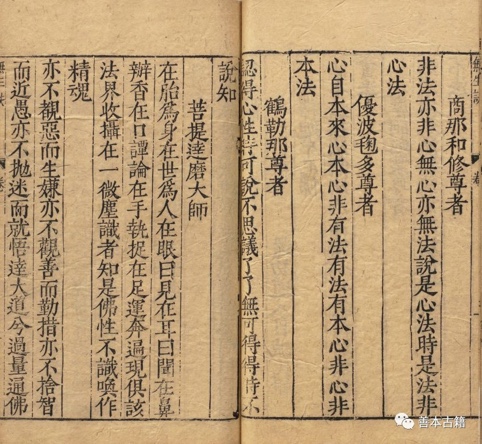 商那和修尊者
非法亦非心無心亦無法說是心法時是法非
心法
優波毱多尊者
心自本來心本心非有法有法有本心非心非
本法
鶴勒那尊者
認得心性時可說不思議了了無可得得時不
說知
菩提達磨大師
在胎爲身在世爲人在眼曰見在耳曰聞在鼻
辨香在口譚論在手執捉在足運奔遍現俱該
法界收攝在一微塵識者知是佛性不識喚作
精魂
亦不覩惡而生嫌亦不觀善而勤措亦不捨智
而近愚亦不拋迷而就悟達大道兮過量通佛
善本古籍